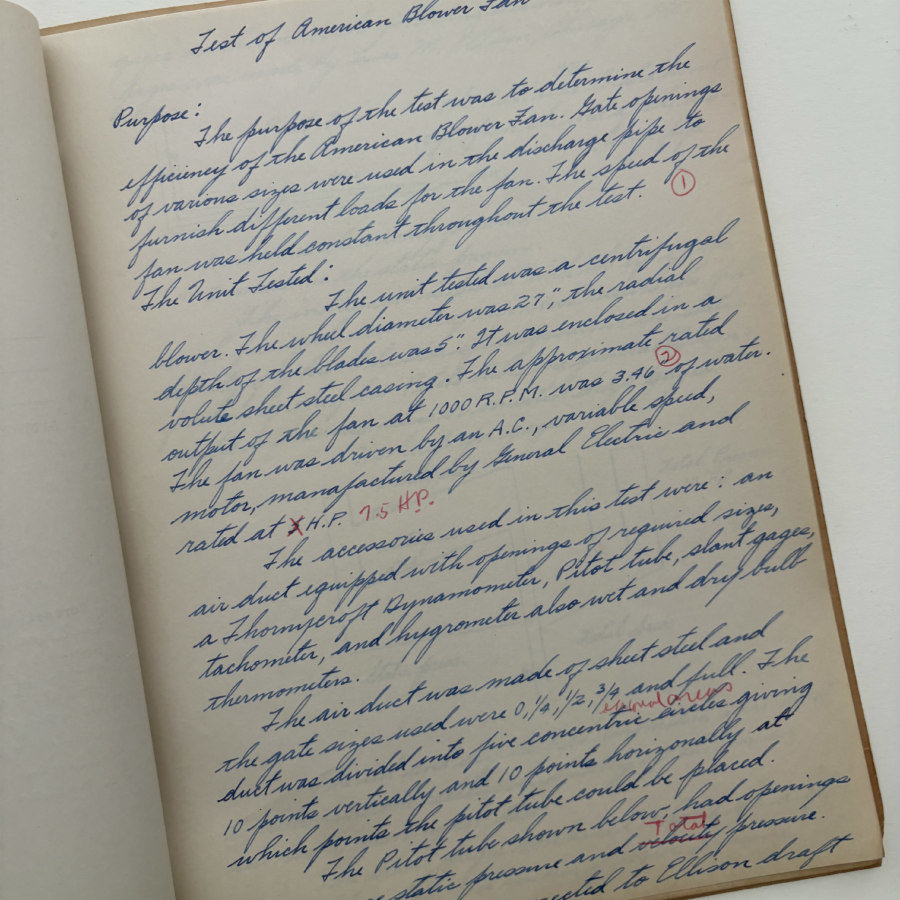 Test of American Blower Fan
Purpose:
The purpose of the test was to determine the
efficiency of the American Blower Fan. Gate openings
of various sizes were used in the discharge pipe to
furnish different loads for the fan. The speed of the
fan was held constant throughout the test. 1
The Unit Tested:
The unit tested was a centrifugal
blower. The wheel diameter was 27", the radial
depth of the blades was 5". It was enclosed in a
volute sheet steel casing. The approximate rated
output of the fan at 1000 R.P.M. was 3.46" of water. 2
The fan was driven by an A.C., variable speed,
motor, manafactured by General Electric and
rated at 5 H.P. 7.5 HP.
The accessories used in this test were: an
air duct equipped with openings of required sizes,
a Thornycroft Dynamometer, Pitot tube, slant gages,
tachometer, and hygrometer also wet and dry bulb
thermometers.
The air duct was made of sheet steel and
the gate sizes used were 0, 1/4, 1/2, 3/4 and full. The
equal areas
duct was divided into five concentric circles giving
10 points vertically and 10 points horizonally at
which points the pitot tube could be placed.
The Pitot tube shown below, had openings
Total
static pressure and velocity pressure.
to Ellison draft